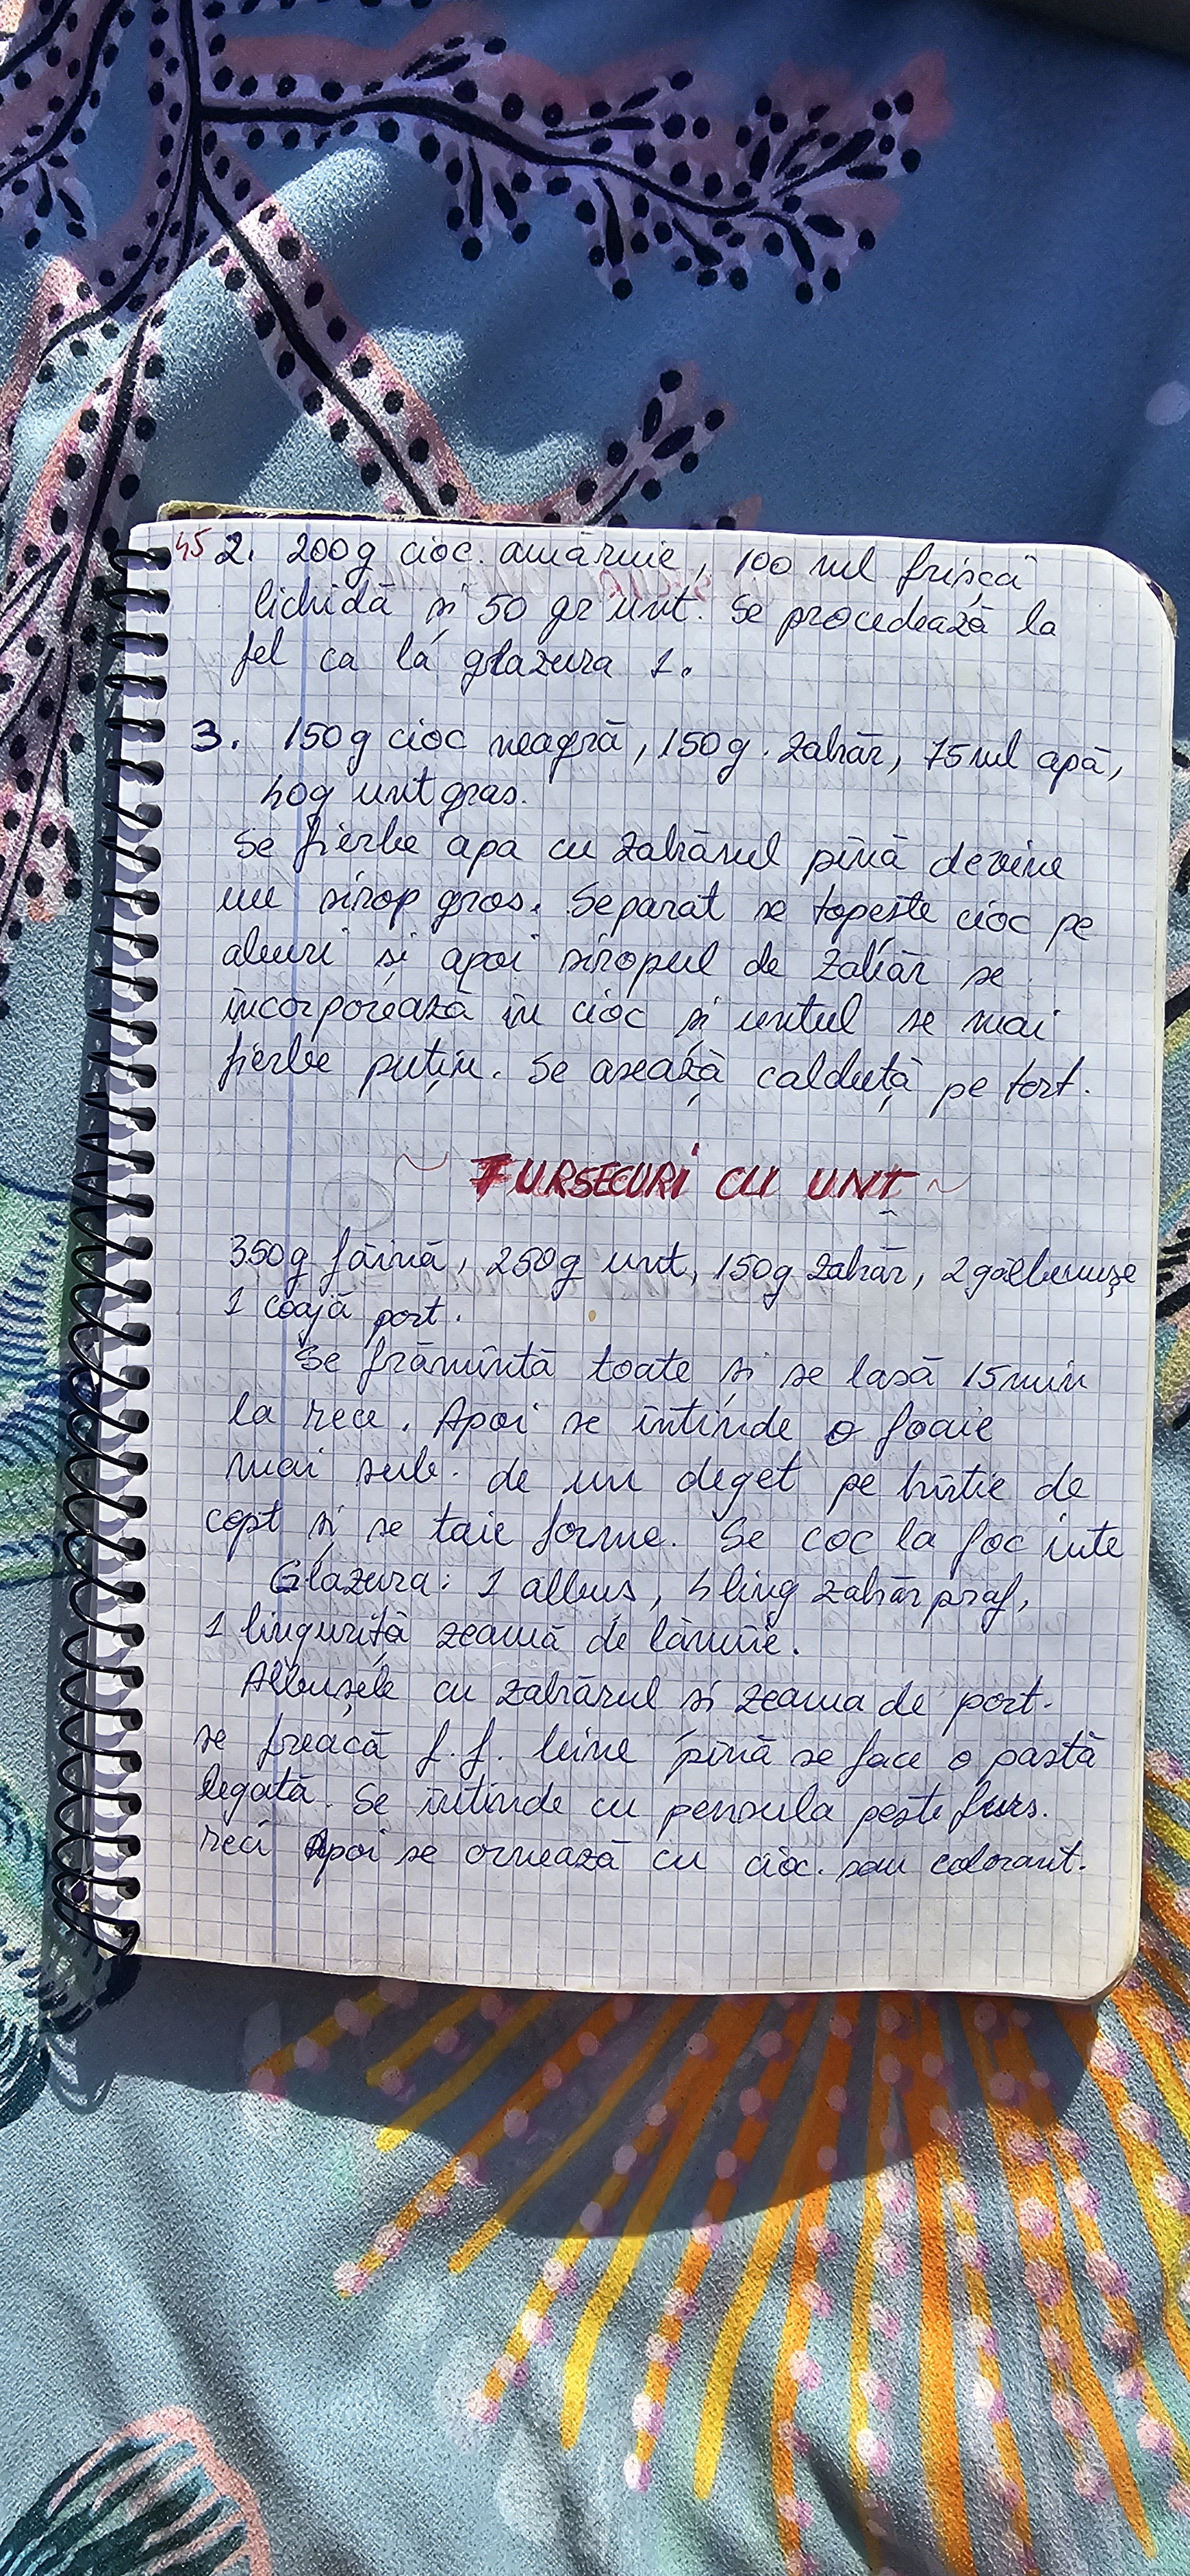 45 2. 200g cioc. amăruie, 100 ml frișcă
lichidă și 50 gr unt. Se procedează la
fel ca la glazura 1.
3. 150g cioc neagră, 150g. zahăr, 75 ml apă,
40g unt gras.
Se fierbe apa cu zahărul pînă devine
un sirop gros. Separat se topește cioc pe
aburi și apoi siropul de zahăr se
incorporează în cioc și untul se mai
fierbe puțin. Se așează călduță pe tort.
~ FURSECURI CU UNT ~
350g făină, 250g unt, 150g zahăr, 2 gălbenușe
1 coajă port.
Se frămîntă toate și se lasă 15 min
la rece. Apoi se întinde o foaie
mai sub. de un deget pe hîrtie de
copt și se taie forme. Se coc la foc iute
Glazura: 1 albuș, 4 ling zahăr praf,
1 linguriță zeamă de lămîie.
Albușele cu zahărul și zeama de port.
se freacă f.f. bine pînă se face o pastă
legată. Se întinde cu pensula peste furs.
reci Apoi se ornează cu cioc. sau colorant.